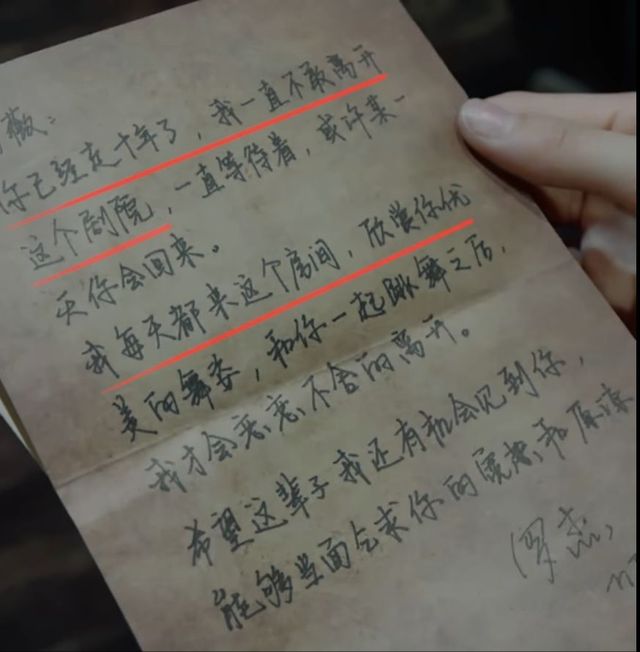 薇：
你已经走十年了，我一直不敢离开
这个剧院，一直等待着，或许某一
天你会回来。
我每天都来这个房间，欣赏你优
美的舞姿，和你一起跳舞之后，
我才会恋恋不舍的离开。
希望这辈子我还有机会见到你，
能够当面乞求你的宽恕和原谅
罗杰